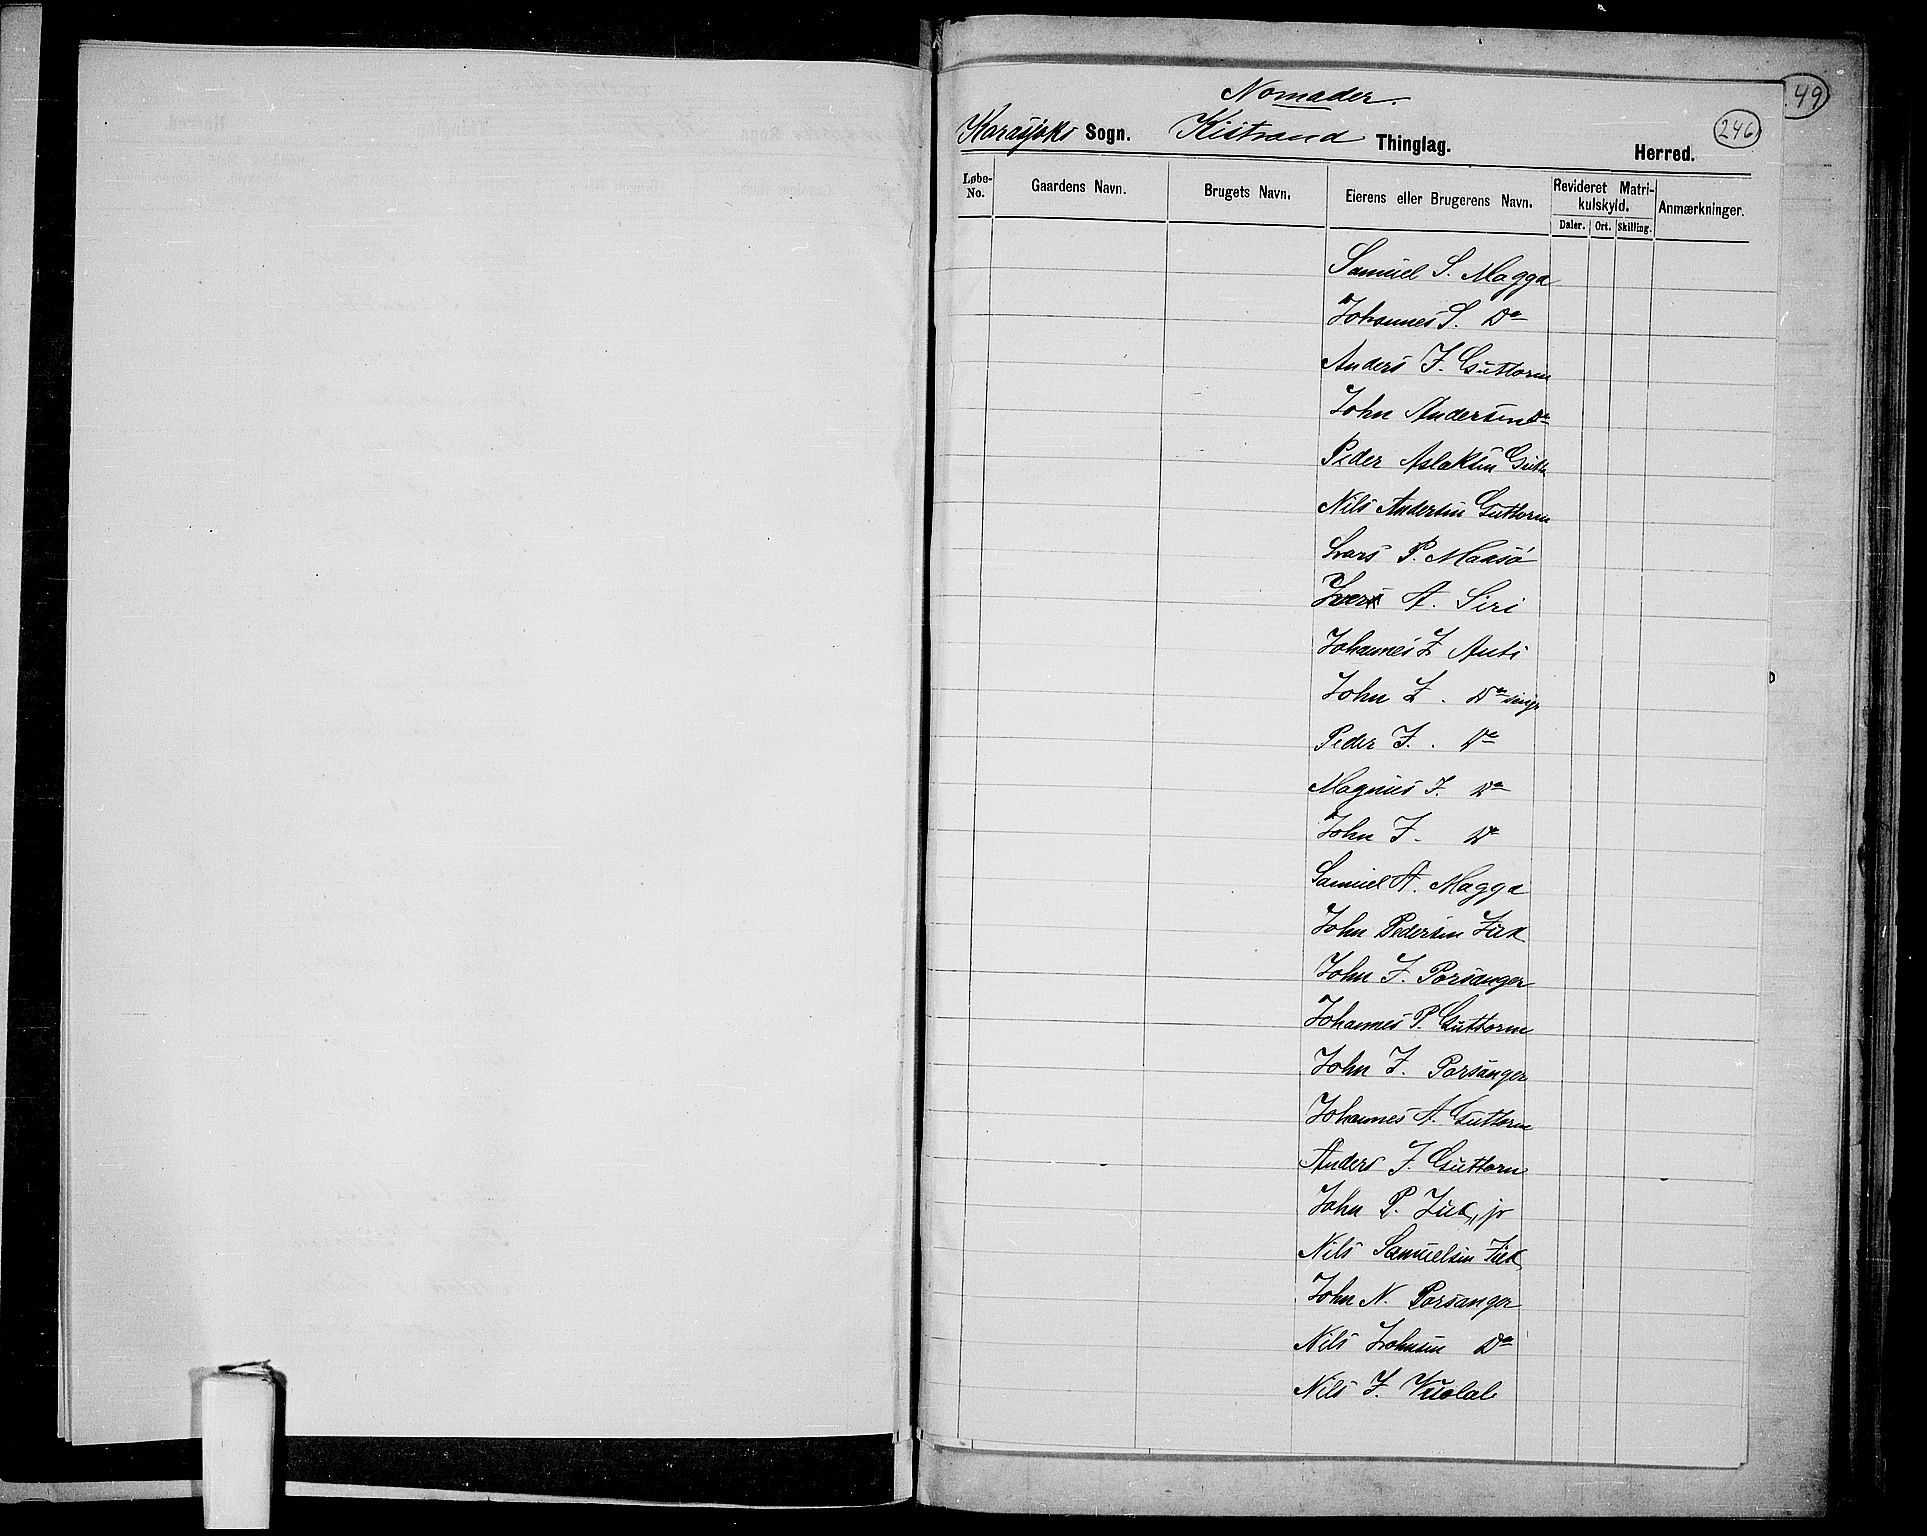 Nomader.
49
246
Karasjoks Sogn. Kistrand Thinglag. Herred.
Løbe-No. Gaardens Navn. Brugets Navn. Eierens eller Brugerens Navn. Revideret Matrikulskyld. Anmærkninger.
Daler. Ort. Skilling.
Samuel S. Magga
Johannes S. Do
Anders J. Guttorm
John Andersen Do
Peder Aslaksen Gutt
Nils Andersen Guttorm
Lars P. Maasø
Iver A. Siri
Johannes J Anti
John J. Do
Peder J. Do
Magnus J. Do
John J. Do
Samuel A. Magga
John Pedersen
John J. Porsanger
Johannes P. Guttorm
John J. Porsanger
Johannes A. Guttorm
Anders J. Guttorm
John P. jr
Nils Samuelsen
John N. Porsanger
Nils Johnsen Do
Nils J. Vuolab